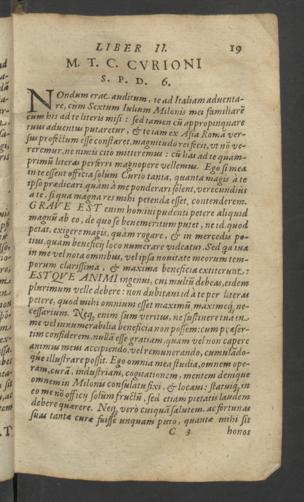 LIBER II. 19
M. T. C. CVRIONI
S. P. D. 6.
NOndum erat auditum, te ad Italiam aduenta-
re, cum Sextum Iulium Milonis mei familiarē
cum his ad te literis misi: sed tamen cū appropinquare
tuus aduentus putaretur, & te iam ex Asia Romā ver-
sus profectum esse constaret, magnitudo rei fecit, vt nō ve-
reremur, ne nimis citò mitteremus: cū has ad te quam-
primū literas perferri magnopere vellemus. Ego si mea
in te essent officia solum Curio tanta, quanta magis à te
ipso praedicari, quàm à me ponderari solent, verecundiùs
à te, si qua magna res mihi petenda esset, contenderem.
GRAVE EST enim homini pudenti petere aliquid
magnū ab eo, de quo se benemeritum putet, ne id, quod
petat, exigere magis, quàm rogare, & in mercedis po-
tius, quam beneficij loco numerare videatur. Sed quia tua
in me vel nota omnibus, vel ipsa nouitate meorum tem-
porum clarissima, & maxima beneficia extiterunt:
ESTQVE ANIMI ingenui, cui multū debeas, eidem
plurimum velle debere: non dubitaui id à te per literas
petere, quod mihi omnium esset maximū, maximeq; ne-
cessarium. Neq; enim sum veritus, ne sustinere tua in
me vel innumerabilia beneficia non possem: cum praeser-
tim confiderem, nulla esse gratiam, quam vel non capere
animus meus accipiendo, vel remunerando, cumulādo-
que illustrare possit. Ego omnia mea studia, omnem ope-
ram, curā, industriam, cogitationem, mentem denique
omnem in Milonis consulatu fixi, & locaui: statuiq; in
eo me nō officij solum fructū, sed etiam pietatis laudem
debere quaerere. Neq; verò cuiquā salutem, ac fortunas
suas tantae curae fuisse vnquam puto, quantae mihi sit
C 3 honos